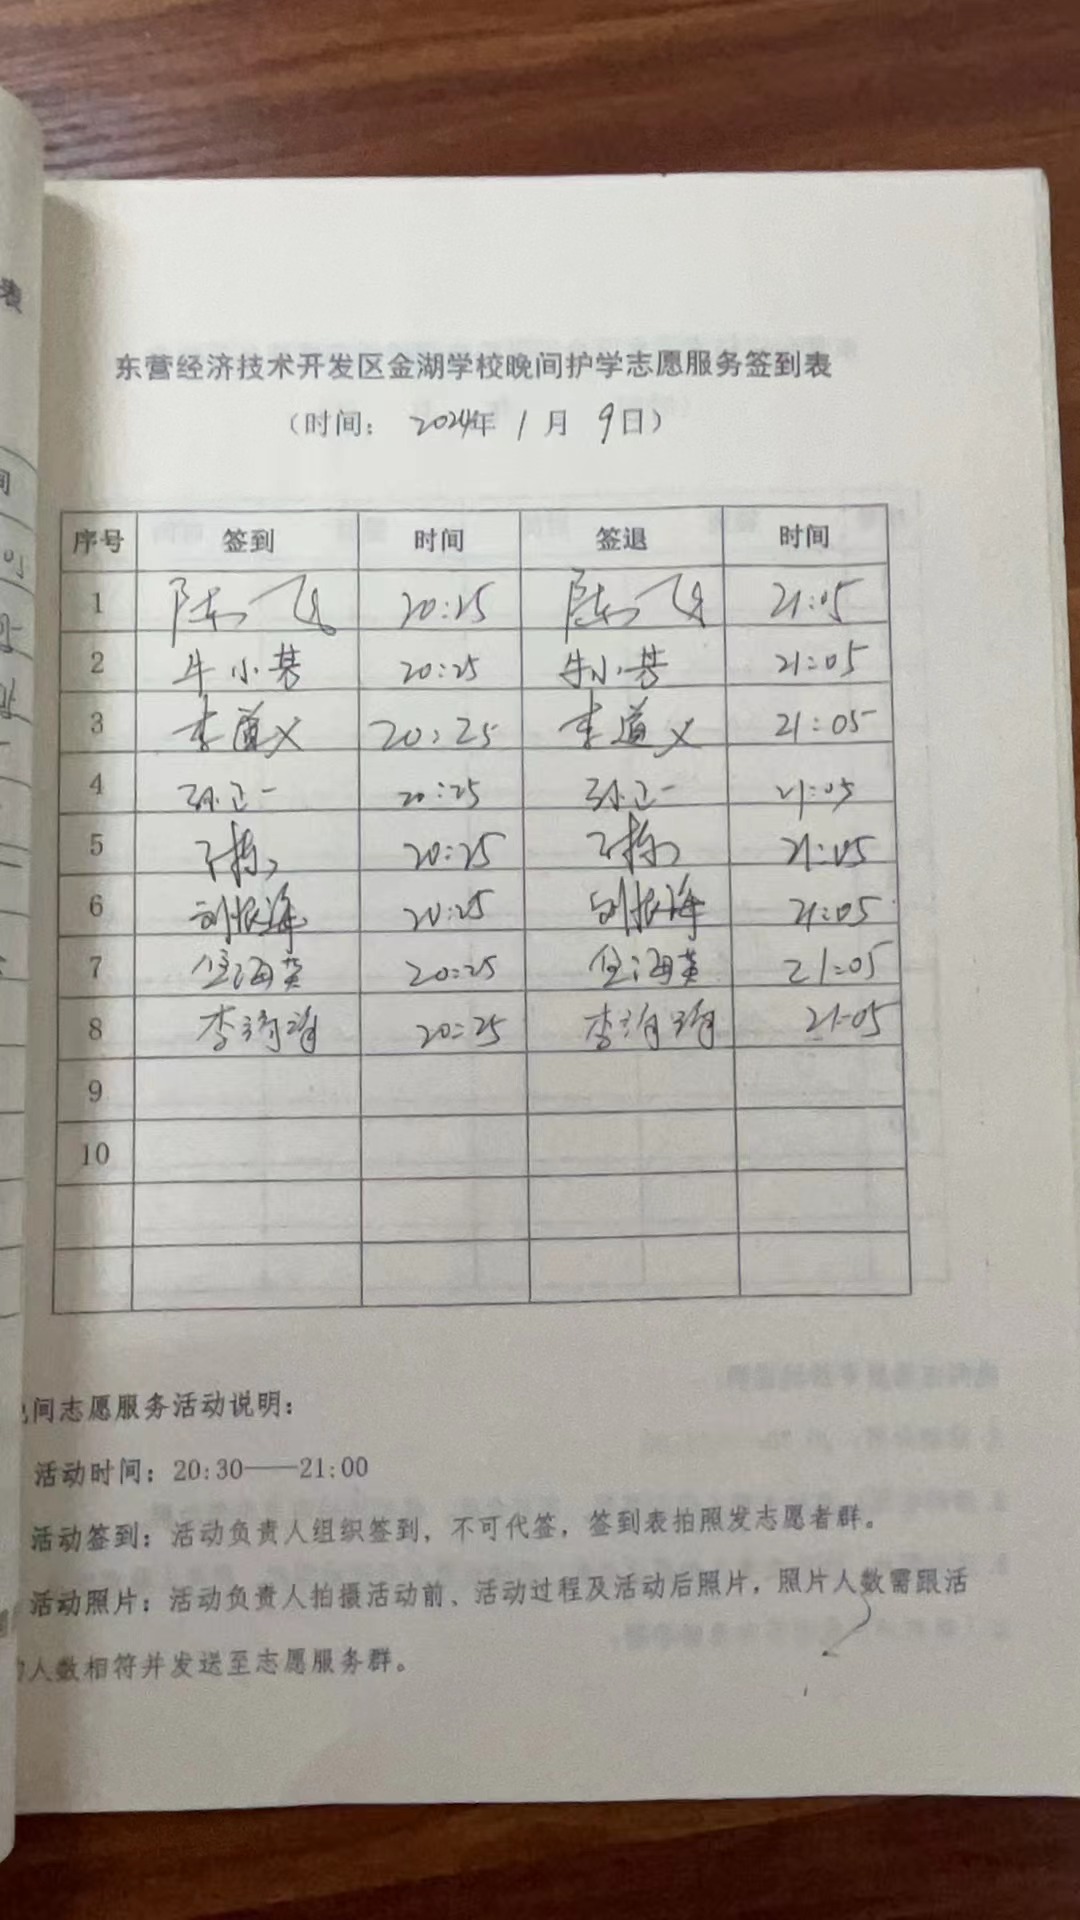 表
间
东营经济技术开发区金湖学校晚间护学志愿服务签到表
(时间: 2024年 1 月 9日)
序号 签到 时间 签退 时间
1 陈飞 20:25 陈飞 21:05
2 牛小芳 20:25 牛小芳 21:05
3 李道义 20:25 李道义 21:05
4 孙卫一 20:25 孙卫一 21:05
5 20:25 21:05
6 刘振海 20:25 刘振海 21:05
7 海英 20:25 海英 21:05
8 李 20:25 李 21:05
9
10
间志愿服务活动说明:
活动时间: 20:30——21:00
活动签到: 活动负责人组织签到, 不可代签, 签到表拍照发志愿者群。
活动照片: 活动负责人拍摄活动前、活动过程及活动后照片, 照片人数需跟活
人数相符并发送至志愿服务群。